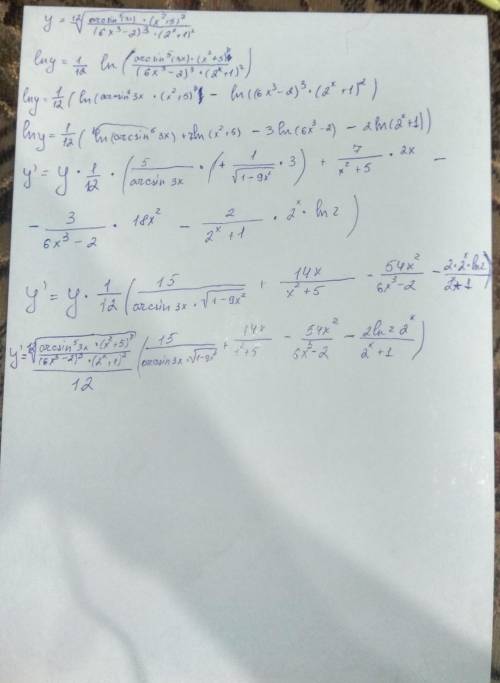 y = ¹²√(arcsin⁵(3x) · (x²+5)⁷ / (6x³-2)³ · (2ˣ+1)²)
lny = 1/12 ln (arcsin⁵(3x) · (x²+5)⁷ / (6x³-2)³ · (2ˣ+1)²)
lny = 1/12 (ln(arcsin⁵ 3x · (x²+5)⁷) - ln((6x³-2)³ · (2ˣ+1)²)
lny = 1/12 (ln(arcsin⁵ 3x) + 7ln(x²+5) - 3ln(6x³-2) - 2ln(2ˣ+1))
y' = y · 1/12 · (5/arcsin 3x · (+ 1/√(1-9x²) · 3) + 7/(x²+5) · 2x -
- 3/(6x³-2) · 18x² - 2/(2ˣ+1) · 2ˣ · ln2)
y' = y · 1/12 (15/(arcsin 3x · √(1-9x²)) + 14x/(x²+5) - 54x²/(6x³-2) - 2·2ˣ·ln2/(2ˣ+1))
y' = ¹²√(arcsin⁵3x · (x²+5)⁷ / (6x³-2)³ · (2ˣ+1)²) / 12 (15/(arcsin 3x · √(1-9x²)) + 14x/(x²+5) - 54x²/(6x³-2) - 2ln2 · 2ˣ/(2ˣ+1))